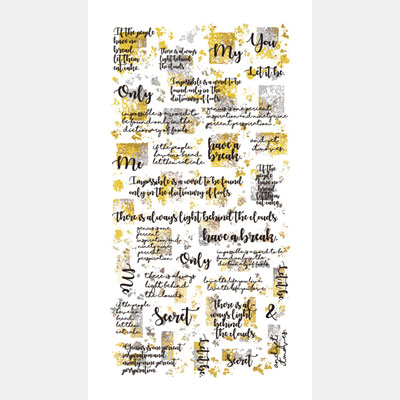 If the people
have no
bread
let them
eat cake.
There is always
light behind
the clouds.
My
You
Let it be.
Only
Impossible is a word to be
found only in the
dictionary of fools.
impossible is a word to be
found only in the
dictionary of fools.
genius is one percent
inspiration and ninety nine
percent perspiration.
Me
if the people
have no bread
let them eat cake.
have a
break.
Impossible is a word to be found
only in the dictionary of fools.
If the
people
have no
bread
let them
eat cake.
there is always light behind the clouds.
genius is one
percent
inspiration and
ninety nine
percent
perspiration.
have a break.
Only
impossible is a word to be found
only in the dictionary of fools.
Me
there is always
light behind
the clouds.
Let it be.
if the people
have no
bread
let them
eat cake.
Secret
There is al-
ways light
behind
the clouds.
&
Genius is one percent
inspiration and
ninety nine percent
perspiration.
Let it be.
Secret